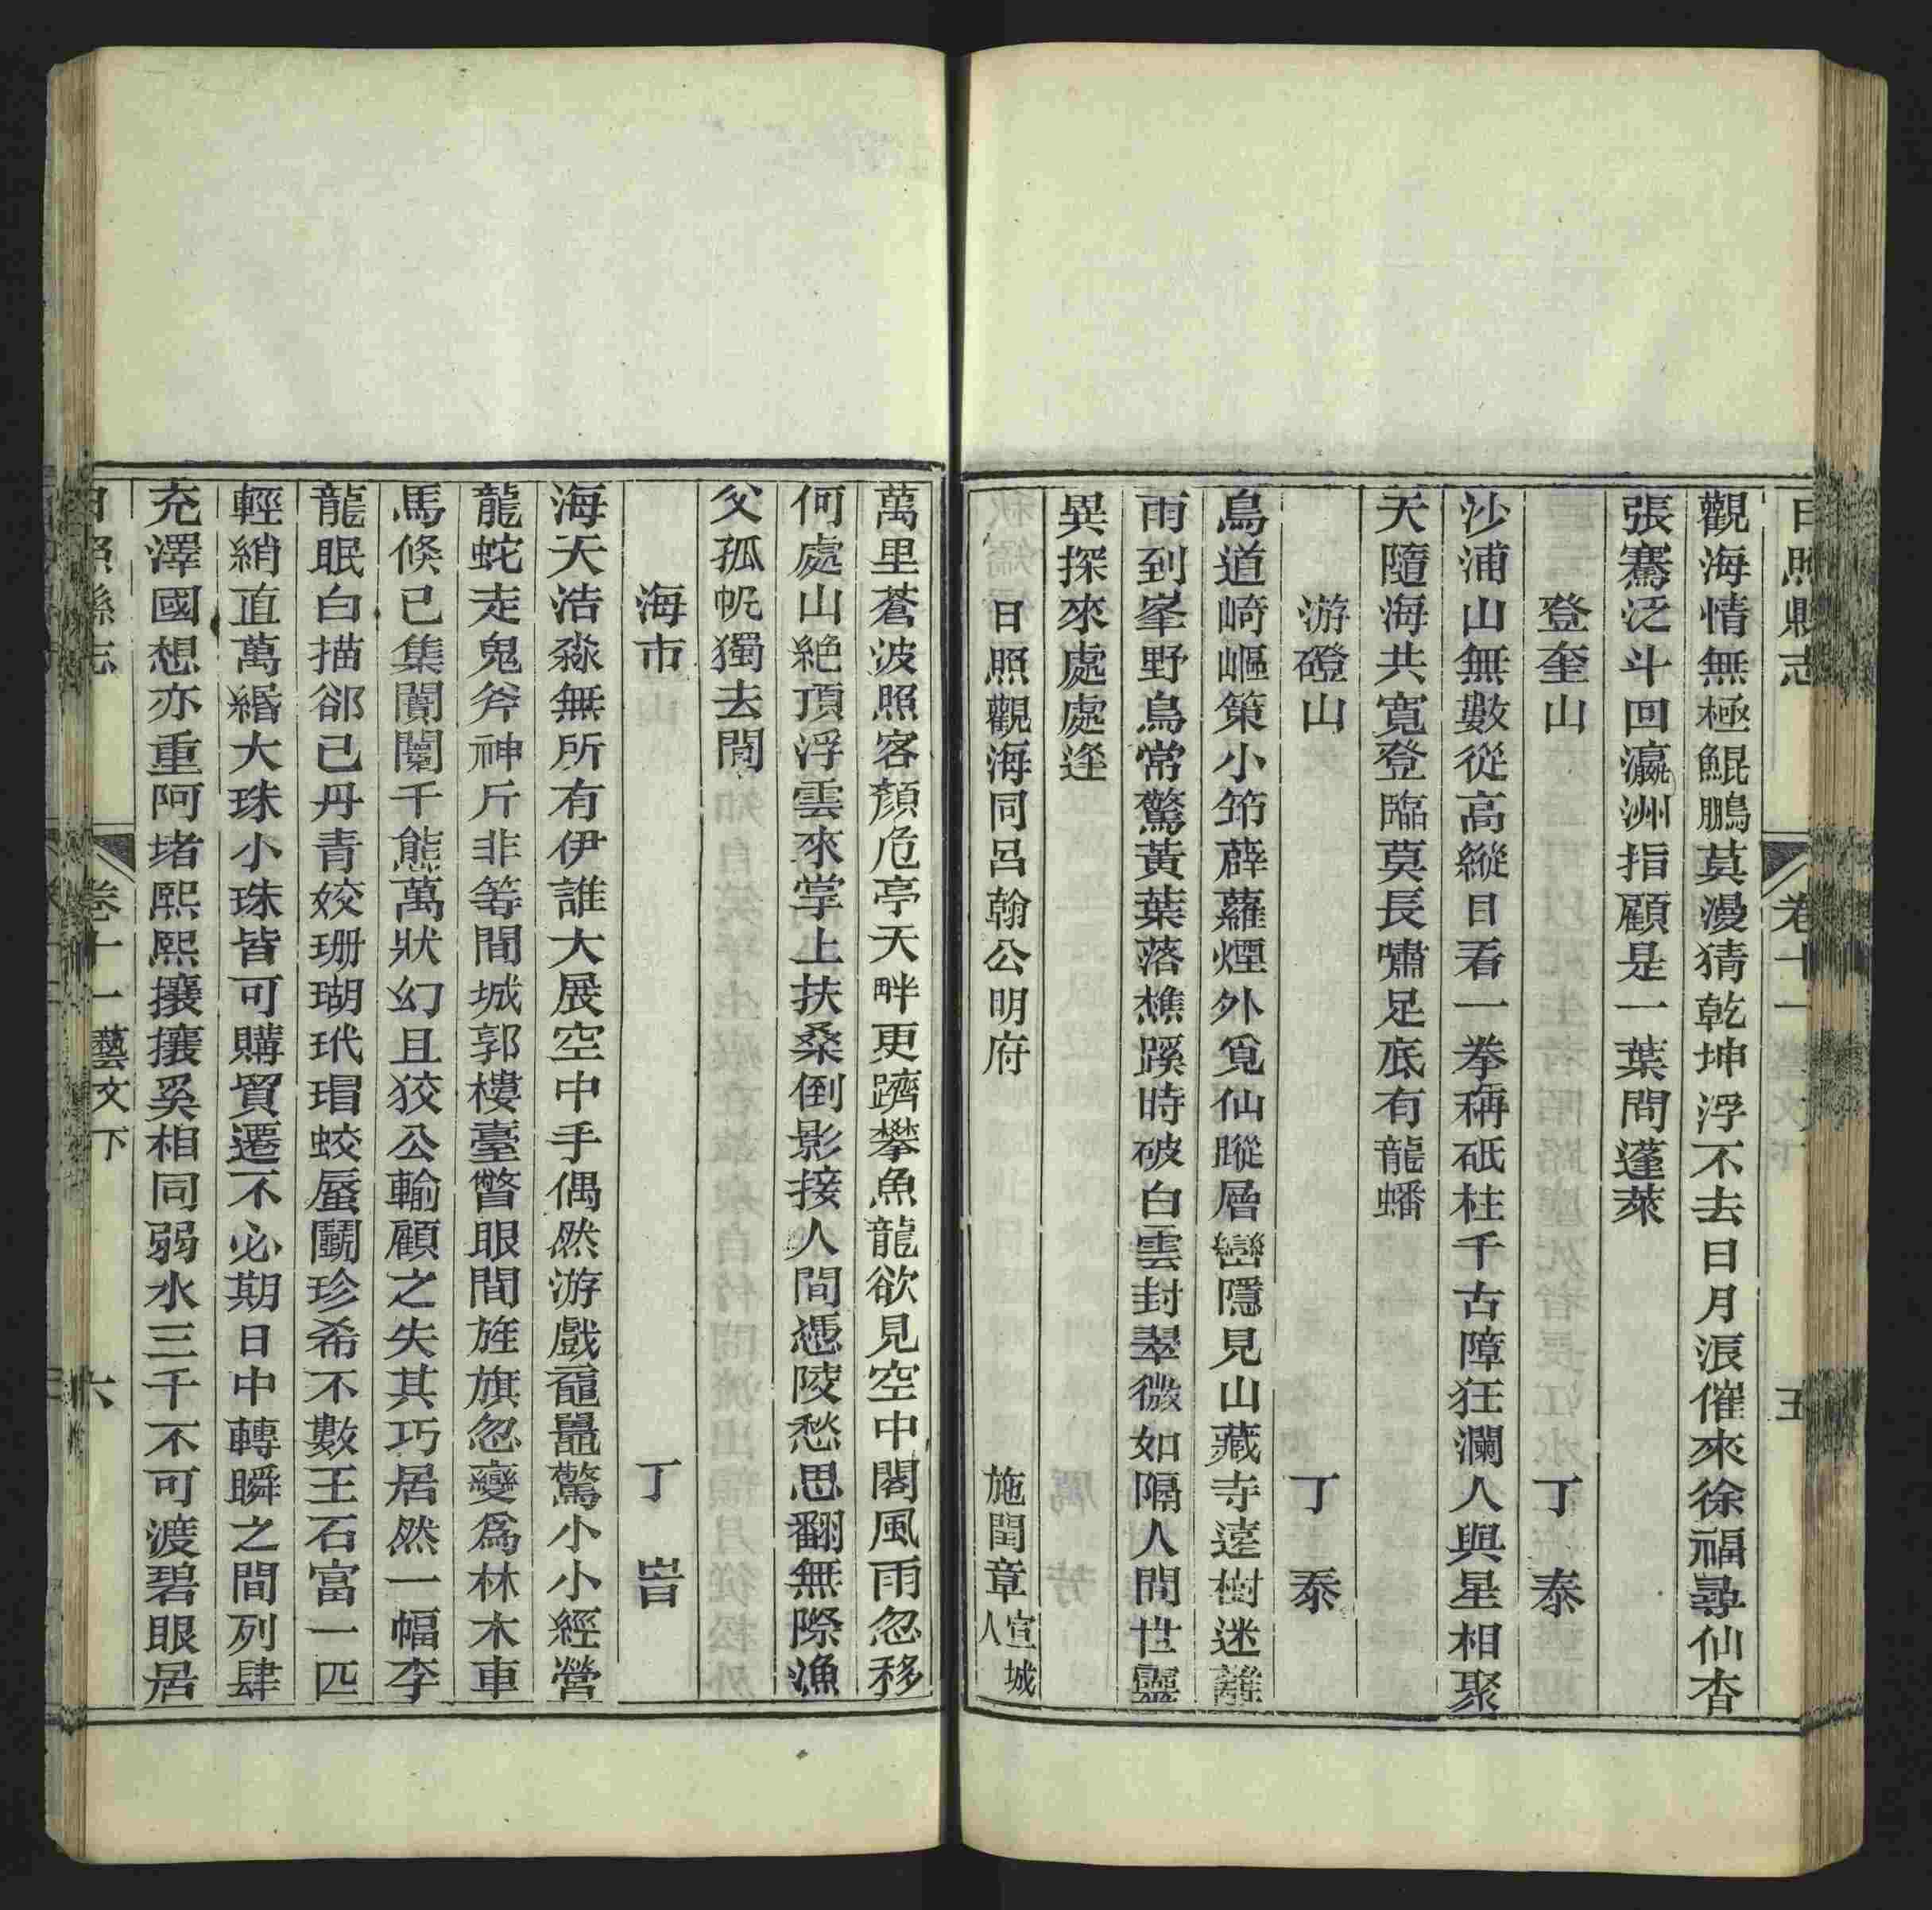 日照縣志 卷十一藝文下 五
觀海情無極鯤鵬莫漫猜乾坤浮不去日月浪催來徐福尋仙杳
張騫泛斗回瀛洲指顧是一葉問蓬萊
登奎山 丁泰
沙浦山無數從高縱目看一拳稱砥柱千古障狂瀾人與星相聚
天隨海共寬登臨莫長嘯足底有龍蟠
游磴山 丁泰
鳥道崎嶇策小笻薜蘿煙外覓仙蹤層巒隱見山藏寺遠樹迷離
雨到峯野鳥常驚黃葉落樵蹊時破白雲封翠微如隔人間世靈
異探來處處逢
日照觀海同呂翰公明府 施閏章宣城人
萬里蒼波照客顏危亭天畔更躋攀魚龍欲見空中閣風雨忽移
何處山絶頂浮雲來掌上扶桑倒影接人間憑陵愁思翻無際漁
父孤帆獨去閒
海市 丁峕
海天浩淼無所有伊誰大展空中手偶然游戲黿鼉驚小小經營
龍蛇走鬼斧神斤非等閒城郭樓臺瞥眼間旌旗忽變爲林木車
馬倏已集闤闠千態萬狀幻且狡公輸顧之失其巧居然一幅李
龍眠白描郤已丹青姣珊瑚玳瑁蛟蜃鬭珍希不數王石富一匹
輕綃直萬緡大珠小珠皆可購貿遷不必期日中轉瞬之間列肆
充澤國想亦重阿堵熙熙攘攘奚相同弱水三千不可渡碧眼居
日照縣志 卷十一藝文下 六